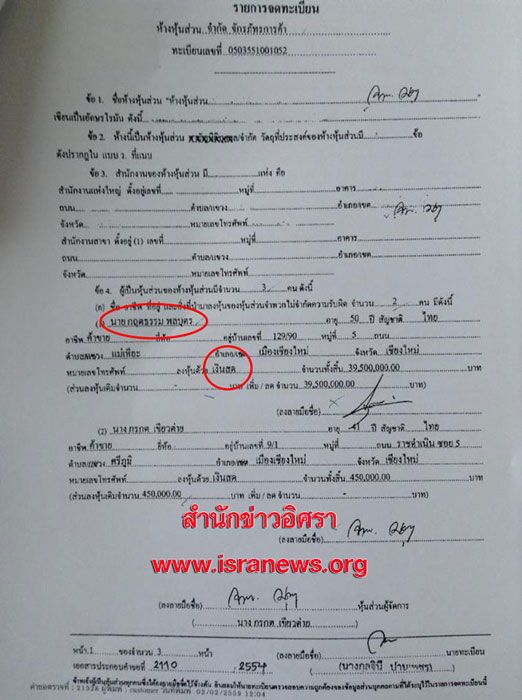 รายการจดทะเบียน
ห้างหุ้นส่วน จำกัด จักรภัทรการค้า
ทะเบียนเลขที่ 0503551001052
ข้อ 1. ชื่อห้างหุ้นส่วน "ห้างหุ้นส่วน
เขียนเป็นอักษรโรมัน ดังนี้
ข้อ 2. ห้างนี้เป็นห้างหุ้นส่วน จำกัด วัตถุที่ประสงค์ของห้างหุ้นส่วนมี ข้อ
ดังปรากฏใน แบบ ว. ที่แนบ
ข้อ 3. สำนักงานของห้างหุ้นส่วน มี แห่ง คือ
สำนักงานแห่งใหญ่ ตั้งอยู่เลขที่ หมู่ที่ อาคาร
ถนน ตำบล/แขวง อำเภอ/เขต
จังหวัด หมายเลขโทรศัพท์
สำนักงานสาขา ตั้งอยู่ (1) เลขที่ หมู่ที่ อาคาร
ถนน ตำบล/แขวง อำเภอ/เขต
จังหวัด หมายเลขโทรศัพท์
ข้อ 4. ผู้เป็นหุ้นส่วนของห้างหุ้นส่วนมีจำนวน 3 คน ดังนี้
(ก) ชื่อ อาชีพ ที่อยู่ และสิ่งที่นำมาลงหุ้นของหุ้นส่วนจำพวกไม่จำกัดความรับผิด จำนวน 2 คน มีดังนี้
นาย กฤตธรรม พลบุตร อายุ 50 ปี สัญชาติ ไทย
อาชีพ ค้าขาย ยี่ห้อ อยู่บ้านเลขที่ 129/90 หมู่ที่ 5 ถนน
ตำบล/แขวง แม่เหียะ อำเภอ/เขต เมืองเชียงใหม่ จังหวัด เชียงใหม่
หมายเลขโทรศัพท์ ลงหุ้นด้วย เงินสด จำนวนทั้งสิ้น 39,500,000.00
(ส่วนลงหุ้นเดิมจำนวน บาท เพิ่ม / ลด จำนวน 39,500,000.00 บาท)
(ลงลายมือชื่อ)
(2) นาง กรกต เขียวค่าย อายุ 41 ปี สัญชาติ ไทย
อาชีพ ค้าขาย ยี่ห้อ อยู่บ้านเลขที่ 9/1 หมู่ที่ ถนน ราชดำเนิน ซอย 5
ตำบล/แขวง ศรีภูมิ อำเภอ/เขต เมืองเชียงใหม่ จังหวัด เชียงใหม่
หมายเลขโทรศัพท์ ลงหุ้นด้วย เงินสด จำนวนทั้งสิ้น 450,000.00
(ส่วนลงหุ้นเดิมจำนวน 450,000.00 บาท เพิ่ม / ลด จำนวน บาท)
สำนักข่าวอิศรา
www.isranews.org
(ลงลายมือชื่อ)
(ลงลายมือชื่อ) หุ้นส่วนผู้จัดการ
( นาง กรกต เขียวค่าย )
หน้า 1 ของจำนวน 3 หน้า นายทะเบียน
เอกสารประกอบคำขอที่ 2110 / 2554